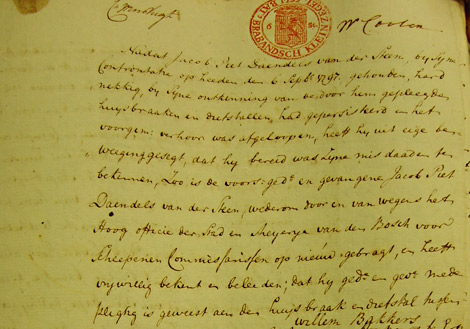 W Coolen
BRABANDSCH KLEIN
Nadat Jacob Piet Daendels van der Steen, by Syne
Confrontatie op heeden den 6 Septb. 1797. gehouden, hard
nekkig, by Syne ontkenning van de door hem gepleegde
huysbraaken en diefstallen, had gepersisteerd en het
voorgem: verhoor was afgeloopen, heeft hy uit eige be-
weeging gesegt, dat hy bereid was Syne misdaaden te
bekennen, Zoo is de voors: gedt. en gevangene Jacob Piet
Daendels van der Steen, wederom door en van wegens het
Hoog officie der Stad en Meyerye van den Bosch voor
Scheepenen Commissarissen op nieuw gebragt, en heeft
vrywillig bekent en beleeden; dat hy gedt. en gevt. mede
pleghtig is geweest aen den huysbraak en diefstal tusschen
willem Bakkers